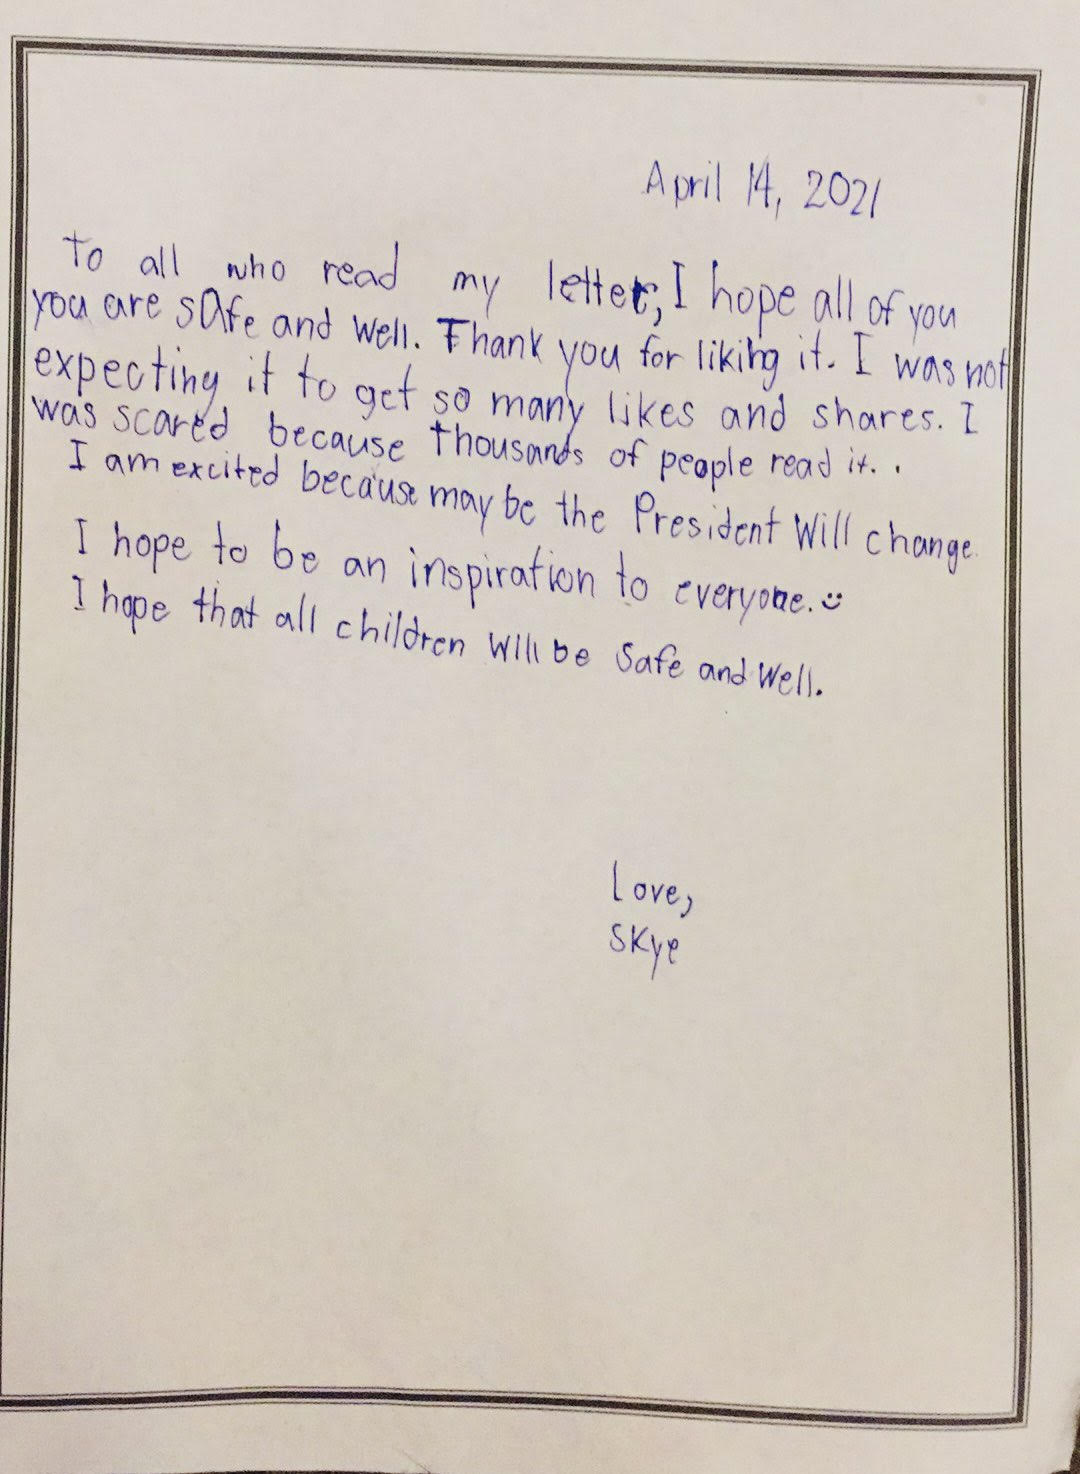 April 14, 2021
To all who read my letter, I hope all of you
you are safe and well. Thank you for liking it. I was not
expecting it to get so many likes and shares. I
was scared because thousands of people read it. .
I am excited because may be the President will change.
I hope to be an inspiration to everyone. :)
I hope that all children will be safe and well.
Love,
Skye